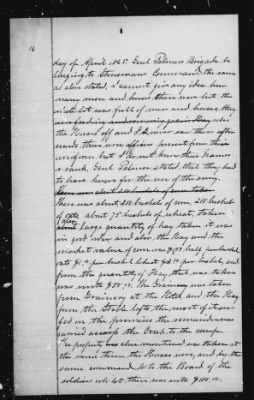 16
day of April 1865. Genl Palmers Brigade be
longing to Stonemans Command, the same
as above stated, I cannot give any idea how
many men and horses there were but the
whole lot was full of men and horses, they
was feeding and
the Horses off and I never saw them after
wards, there were officers present from their
uniform but I do not know their Names
or rank, Genl Palmer stated, that they had
to have horses for the use of the army.
There was about 200 bushels of corn, 250 bushel
of oats, about 75 bushels of wheat, taken
also Large quantity of hay taken it was
in good order and about the Hay and the
market value of corn was per bushel
oats per bushel wheat per bushel, and
from the quantity of Hay that was taken
was worth $50.00. The Grain was taken
from Granary at the Hotel and the Hay
from the Stable lofts the most of it was
fed on the premises the remainder was
carried across the Creek to the camp
The property also mentioned was taken at
the same time the Horses were, and by the
same command, to the Board of the
soldiers while there, was worth $100.00.